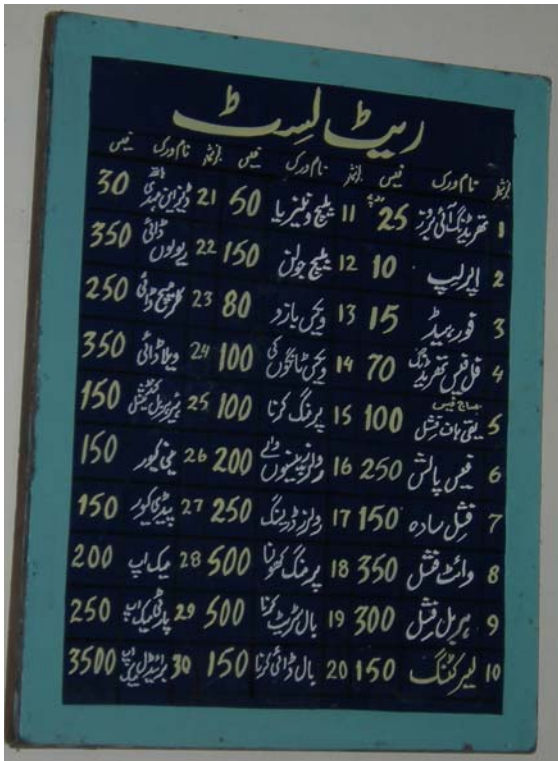 ریٹ لسٹ
نمبر شمار نام ورک فیس نمبر شمار نام ورک فیس نمبر شمار نام ورک فیس
1 تھریڈنگ آئی بروز 25 روپے 11 بلیچ ونیزیا 50 21 ڈیزائن مہندی ہاتھ 30
2 اپر لپ 10 12 بلیچ جولن 150 22 ڈائی 350
3 فور ہیڈ 15 13 ویکس بازو 80 23 ڈائی 250
4 فل فیس تھریڈنگ 70 14 ویکس ٹانگوں کی 100 24 ویلا ڈائی 350
5 مساج فیس یعنی ہاف فیشل 100 15 پرمنگ کرنا 100 25 ہیئر ہربل کنڈیشنل 150
6 فیس پالش 250 16 رولز پینسوں والے 200 26 مینی کیور 150
7 فیشل سادہ 150 17 رولز ڈرینگ 250 27 پیڈی کیور 150
8 وائٹ فیشل 350 18 پرمنگ کھولنا 500 28 میک اپ 200
9 ہربل فیشل 300 19 بال سٹریٹ کرنا 500 29 پارٹی میک اپ 250
10 لیئر کٹنگ 150 20 بال ڈائی کرنا 150 30 برائیڈل میک اپ 3500